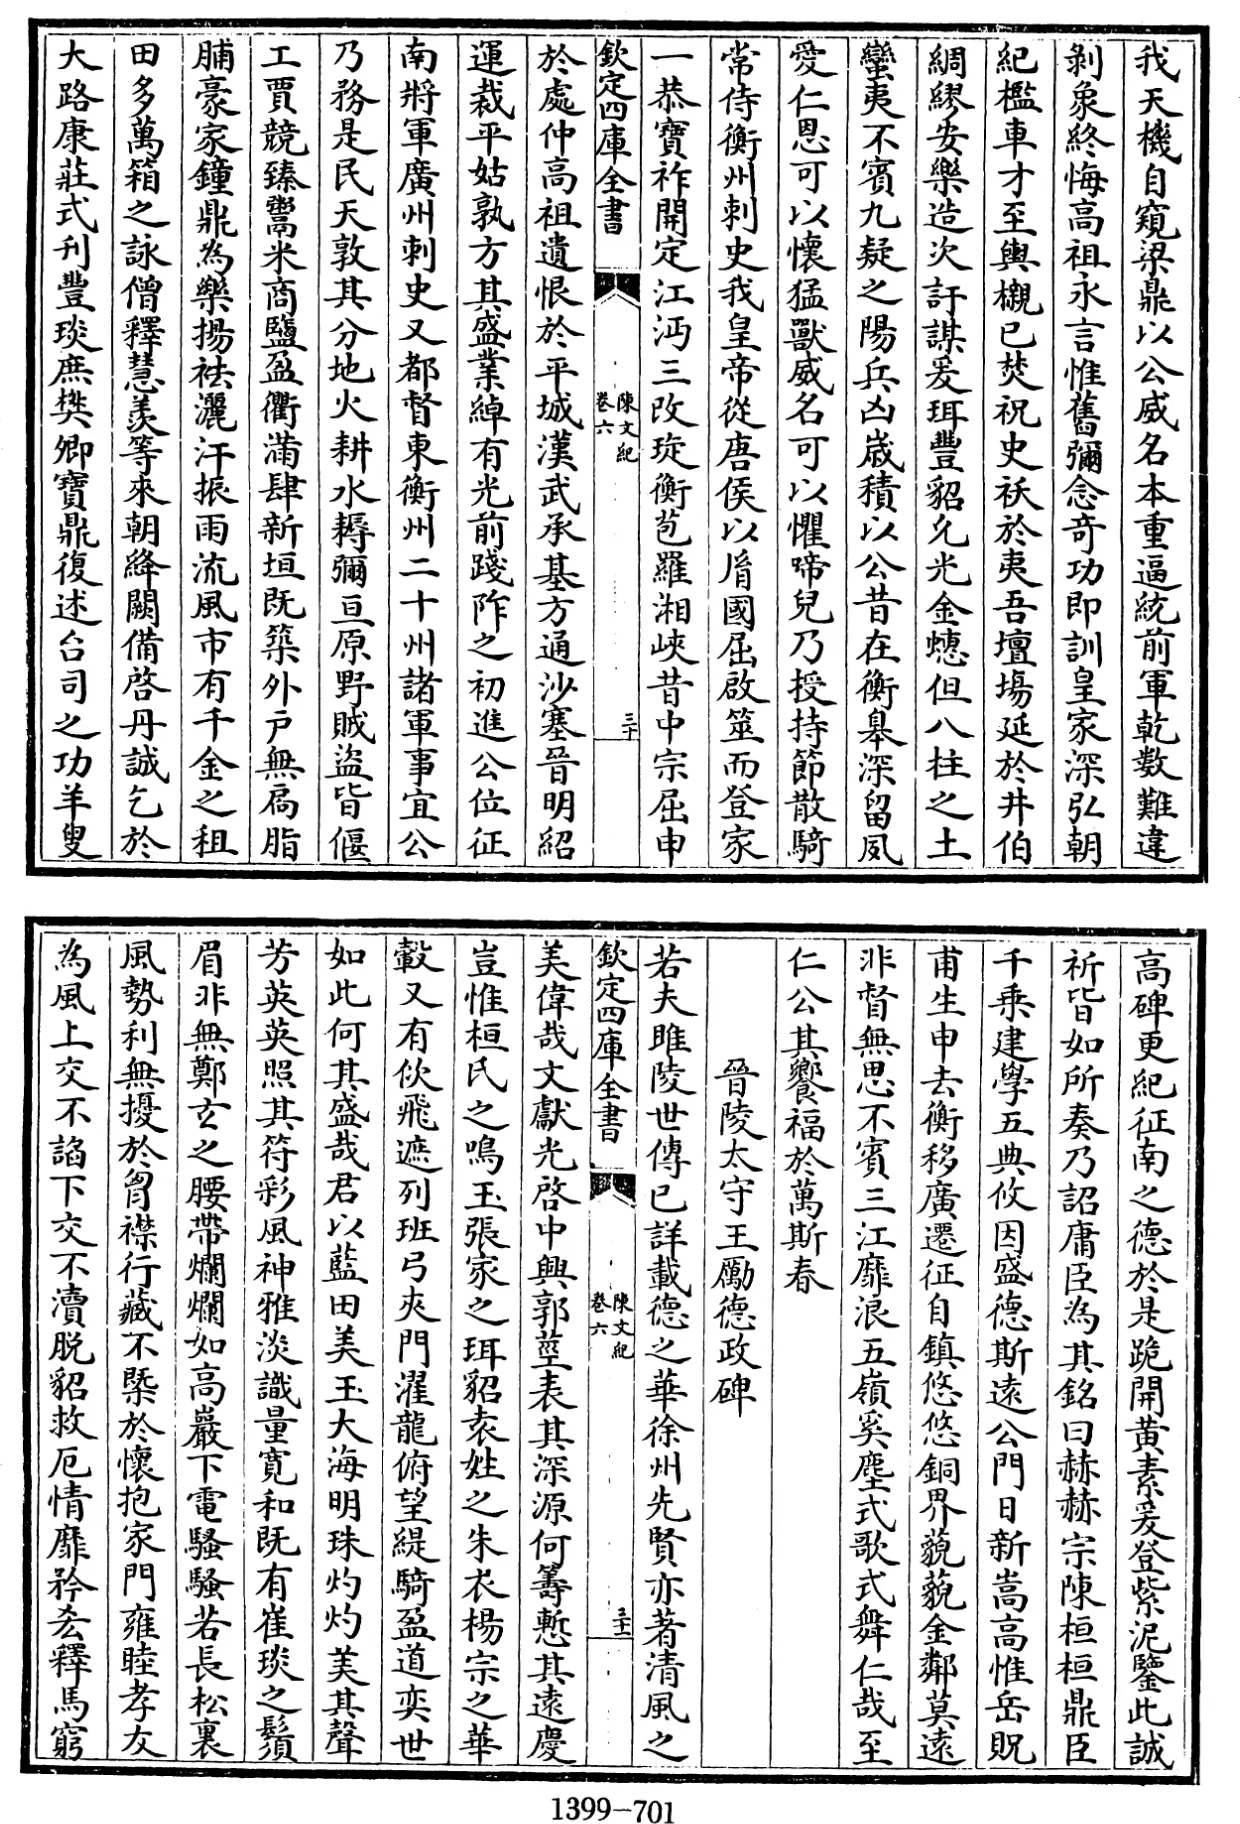 我天機自窺梁鼎以公威名本重逼統前軍乾數難違
剝象終悔高祖永言惟舊彌念奇功即訓皇家深弘朝
紀檻車才至輿櫬已焚祝史祅於夷吾壇場延於井伯
綢繆安樂造次訏謀爰珥豐貂允光金蟪但八柱之土
蠻夷不賓九疑之陽兵凶歳積以公昔在衡臯深留風
愛仁恩可以懷猛獸威名可以懼啼兒乃授持節散騎
常侍衡州刺史我皇帝從唐侯以㣧國屈啟筮而登家
一恭寶祚開定江沔三改琁衡苞羅湘峽昔中宗屈申
欽定四庫全書
陳文紀
卷六
三十
於處仲高祖遺恨於平城漢武承基方通沙塞晉明紹
運裁平姑孰方其盛業綽有光前踐阼之初進公位征
南將軍廣州刺史又都督東衡州二十州諸軍事宜公
乃務是民天敦其分地火耕水耨彌亘原野賊盜皆偃
工賈競臻鬻米商鹽盈衢滿肆新垣既築外戶無扃脂
脯豪家鐘鼎為樂揚袪灑汗振雨流風市有千金之租
田多萬箱之詠僧釋慧羨等來朝絳闕備啓丹誠乞於
大路康莊式刊豐琰庶樊卿寶鼎復述台司之功羊叟
高碑更紀征南之德於是跪開黃素爰登紫泥鑒此誠
祈皆如所奏乃詔庸臣為其銘曰赫赫宗陳桓桓鼎臣
千乘建學五典攸因盛德斯遠公門日新嵩高惟岳貺
甫生申去衡移廣遷征自鎮悠悠銅界藐藐金鄰莫遠
非督無思不賓三江靡浪五嶺奚塵式歌式舞仁哉至
仁公其饗福於萬斯春
晉陵太守王勵德政碑
若夫睢陵世傳已詳載德之華徐州先賢亦著清風之
欽定四庫全書
陳文紀
卷六
三十一
美偉哉文獻光啓中興郭莖表其深源何籌慙其遠慶
豈惟桓氏之鳴玉張家之珥貂袁姓之朱衣楊宗之華
轂又有佽飛遮列班弓夾門濯龍俯望緹騎盈道奕世
如此何其盛哉君以藍田美玉大海明珠灼灼美其聲
芳英英照其符彩風神雅淡識量寛和既有崔琰之鬚
眉非無鄭玄之腰帶爛爛如高巖下電騷騷若長松裏
風勢利無擾於胷襟行藏不槩於懷抱家門雍睦孝友
為風上交不諂下交不瀆脫貂救厄情靡矜吝釋馬窮
1399-701